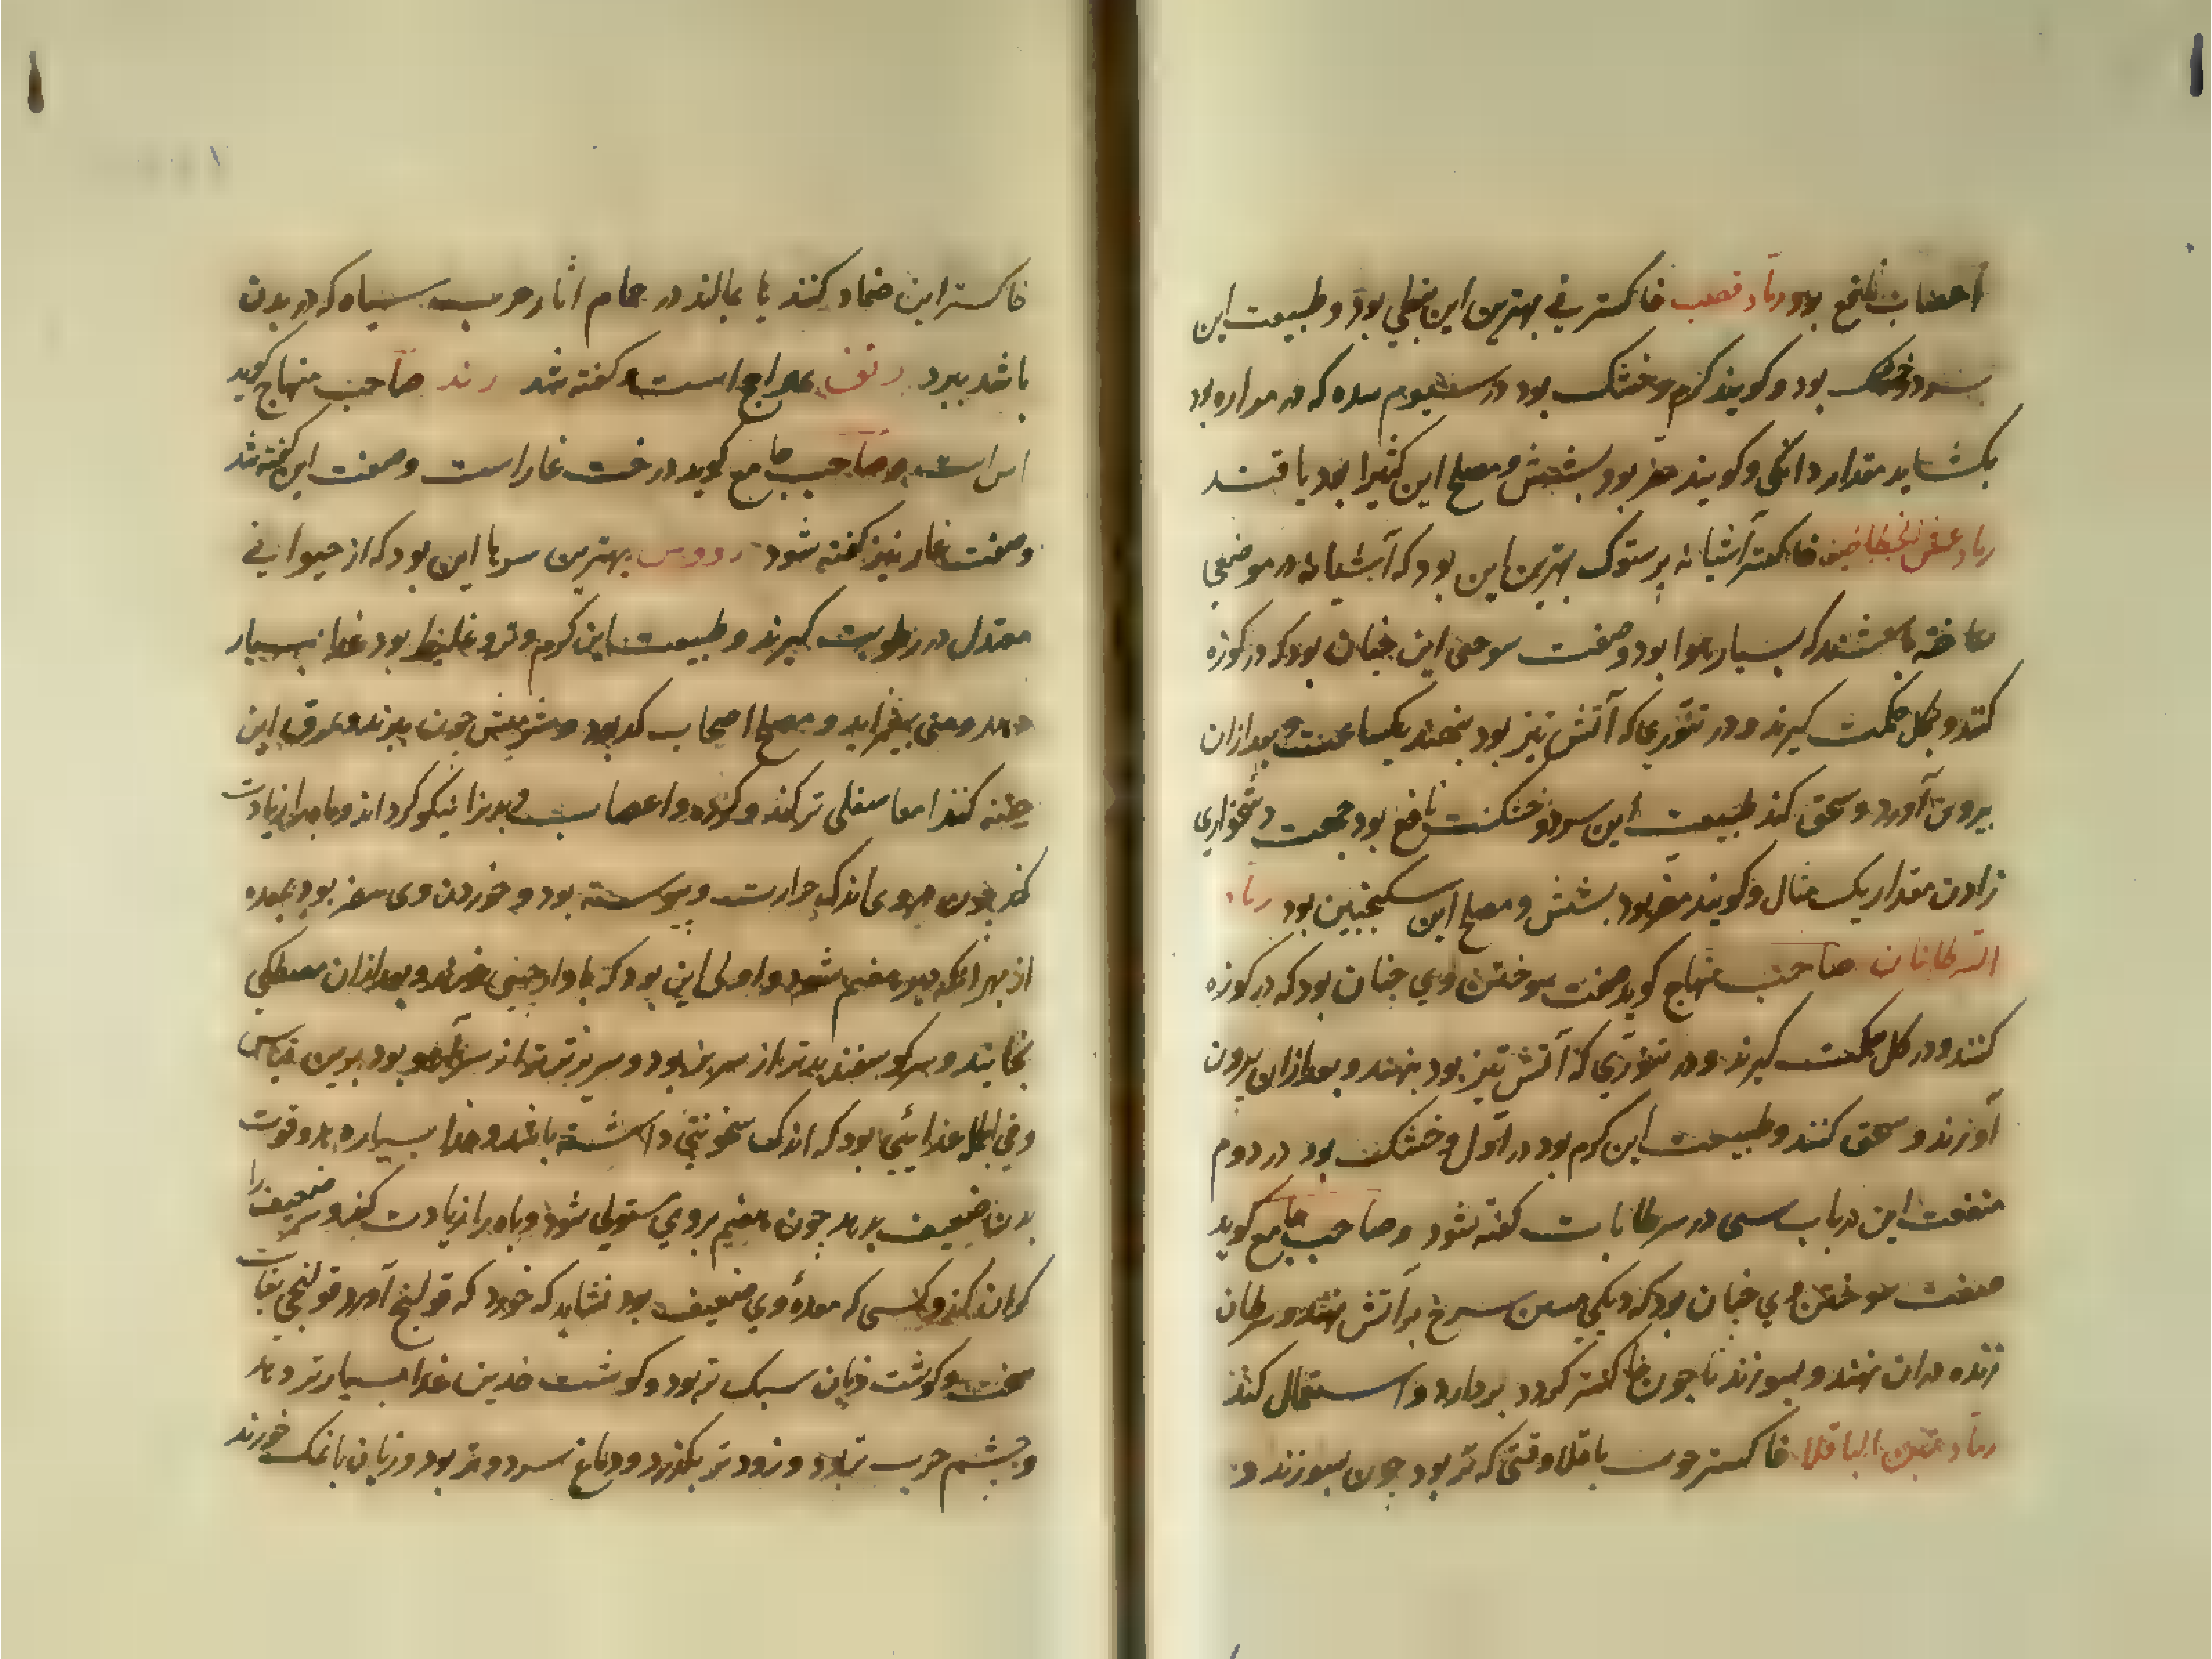 اعصاب نافع بود رماد قصب خاکستر نی بهترین این نبطی بود و طبیعت این
سرد و خشک بود و کویند کرم و خشک بود در سیوم سده که در مراره بود
بکشاید مقدار دانکی و کویند مضر بود بشش و مصلح این کثیرا بود یا قند
رماد عش الخطاطیف خاکستر آشیانه پرستوک بهترین این بود که آشیانه در موضعی
ساخته باشند که بسیار هوا بود و صفت سوختن این چنان بود که در کوزه
کنند و بکل حکمت کیرند و در تنوری که آتش تیز بود بنهند یکساعت و بعد ازان
بیرون آورد و سحق کند طبیعت این سرد و خشکست نافع بود جهت دشخواری
زادن مقدار یک مثقال و کویند مضر بود بشش و مصلح این سکنجبین بود رماد
السرطانات صاحب منهاج کوید صفت سوختن وی چنان بود که در کوزه
کنند و در کل حکمت کیرند و در تنوری که آتش تیز بود بنهند و بعد ازان بیرون
آورند و سحق کنند و طبیعت این کرم بود در اول و خشک بود در دوم
منفعت این در باب سین در سرطانات کفته شود و صاحب جامع کوید
صفت سوختن وی چنان بود که دیکی مسین سرخ بر آتش نهند و سرطان
زنده دران نهند و بسوزند تا چون خاکستر کردد بردارد و استعمال کند
رماد تبن الباقلا خاکستر چوب باقلا وقتی که تر بود چون بسوزند و
خاکستر این ضماد کنند یا بمالند در حمام اثار جرب سیاه که در بدن
باشد ببرد رنف است کفته شد رند صاحب منهاج کوید
اس است و صاحب جامع کوید درخت غار است و صفت این کفته شد
وصفت غار نیز کفته شود رووس بهترین سرها این بود که از حیوانی
معتدل در رطوبت کیرند و طبیعت این کرم و تر و غلیظ بود غذا بسیار
دهد و منی بیفزاید و مصلح اصحاب کد بود چون بپزند و مرق این
حقنه کنند امعا سفلی تر کند و کرده و اعصاب و نیکو کرداند و باه را زیادت
کند چون اندک حرارت و پیوسته بود و خوردن وی مضر بود بمعده
از بهر انکه دیر هضم شود و اولی این بود که با دارچینی خورند و بعد ازان مصطکی
بخایند و سر کوسفند بدتر از سر بز بود و سر بز بدتر از سر آهو بود برین قیاس
و فی الجمله غذائی بود که اندک سخونتی داشته باشد و غذا بسیار دهد و قوت
بدن ضعیف بدهد چون هضم بر وی مستولی شود و باه را زیادت کند و سر ضعیف را
کران کند و کسی که معدهٔ وی ضعیف بود نشاید که خورد که قولنج آورد قولنجی بغایت
سخت و کوشت زبان سبک تر بود و کوشت خدین غذا بسیارتر دهد
و چشم چرب تر بود و زود تر بکذرد و دماغ سرد و تر بود و زبان با نمک خورند